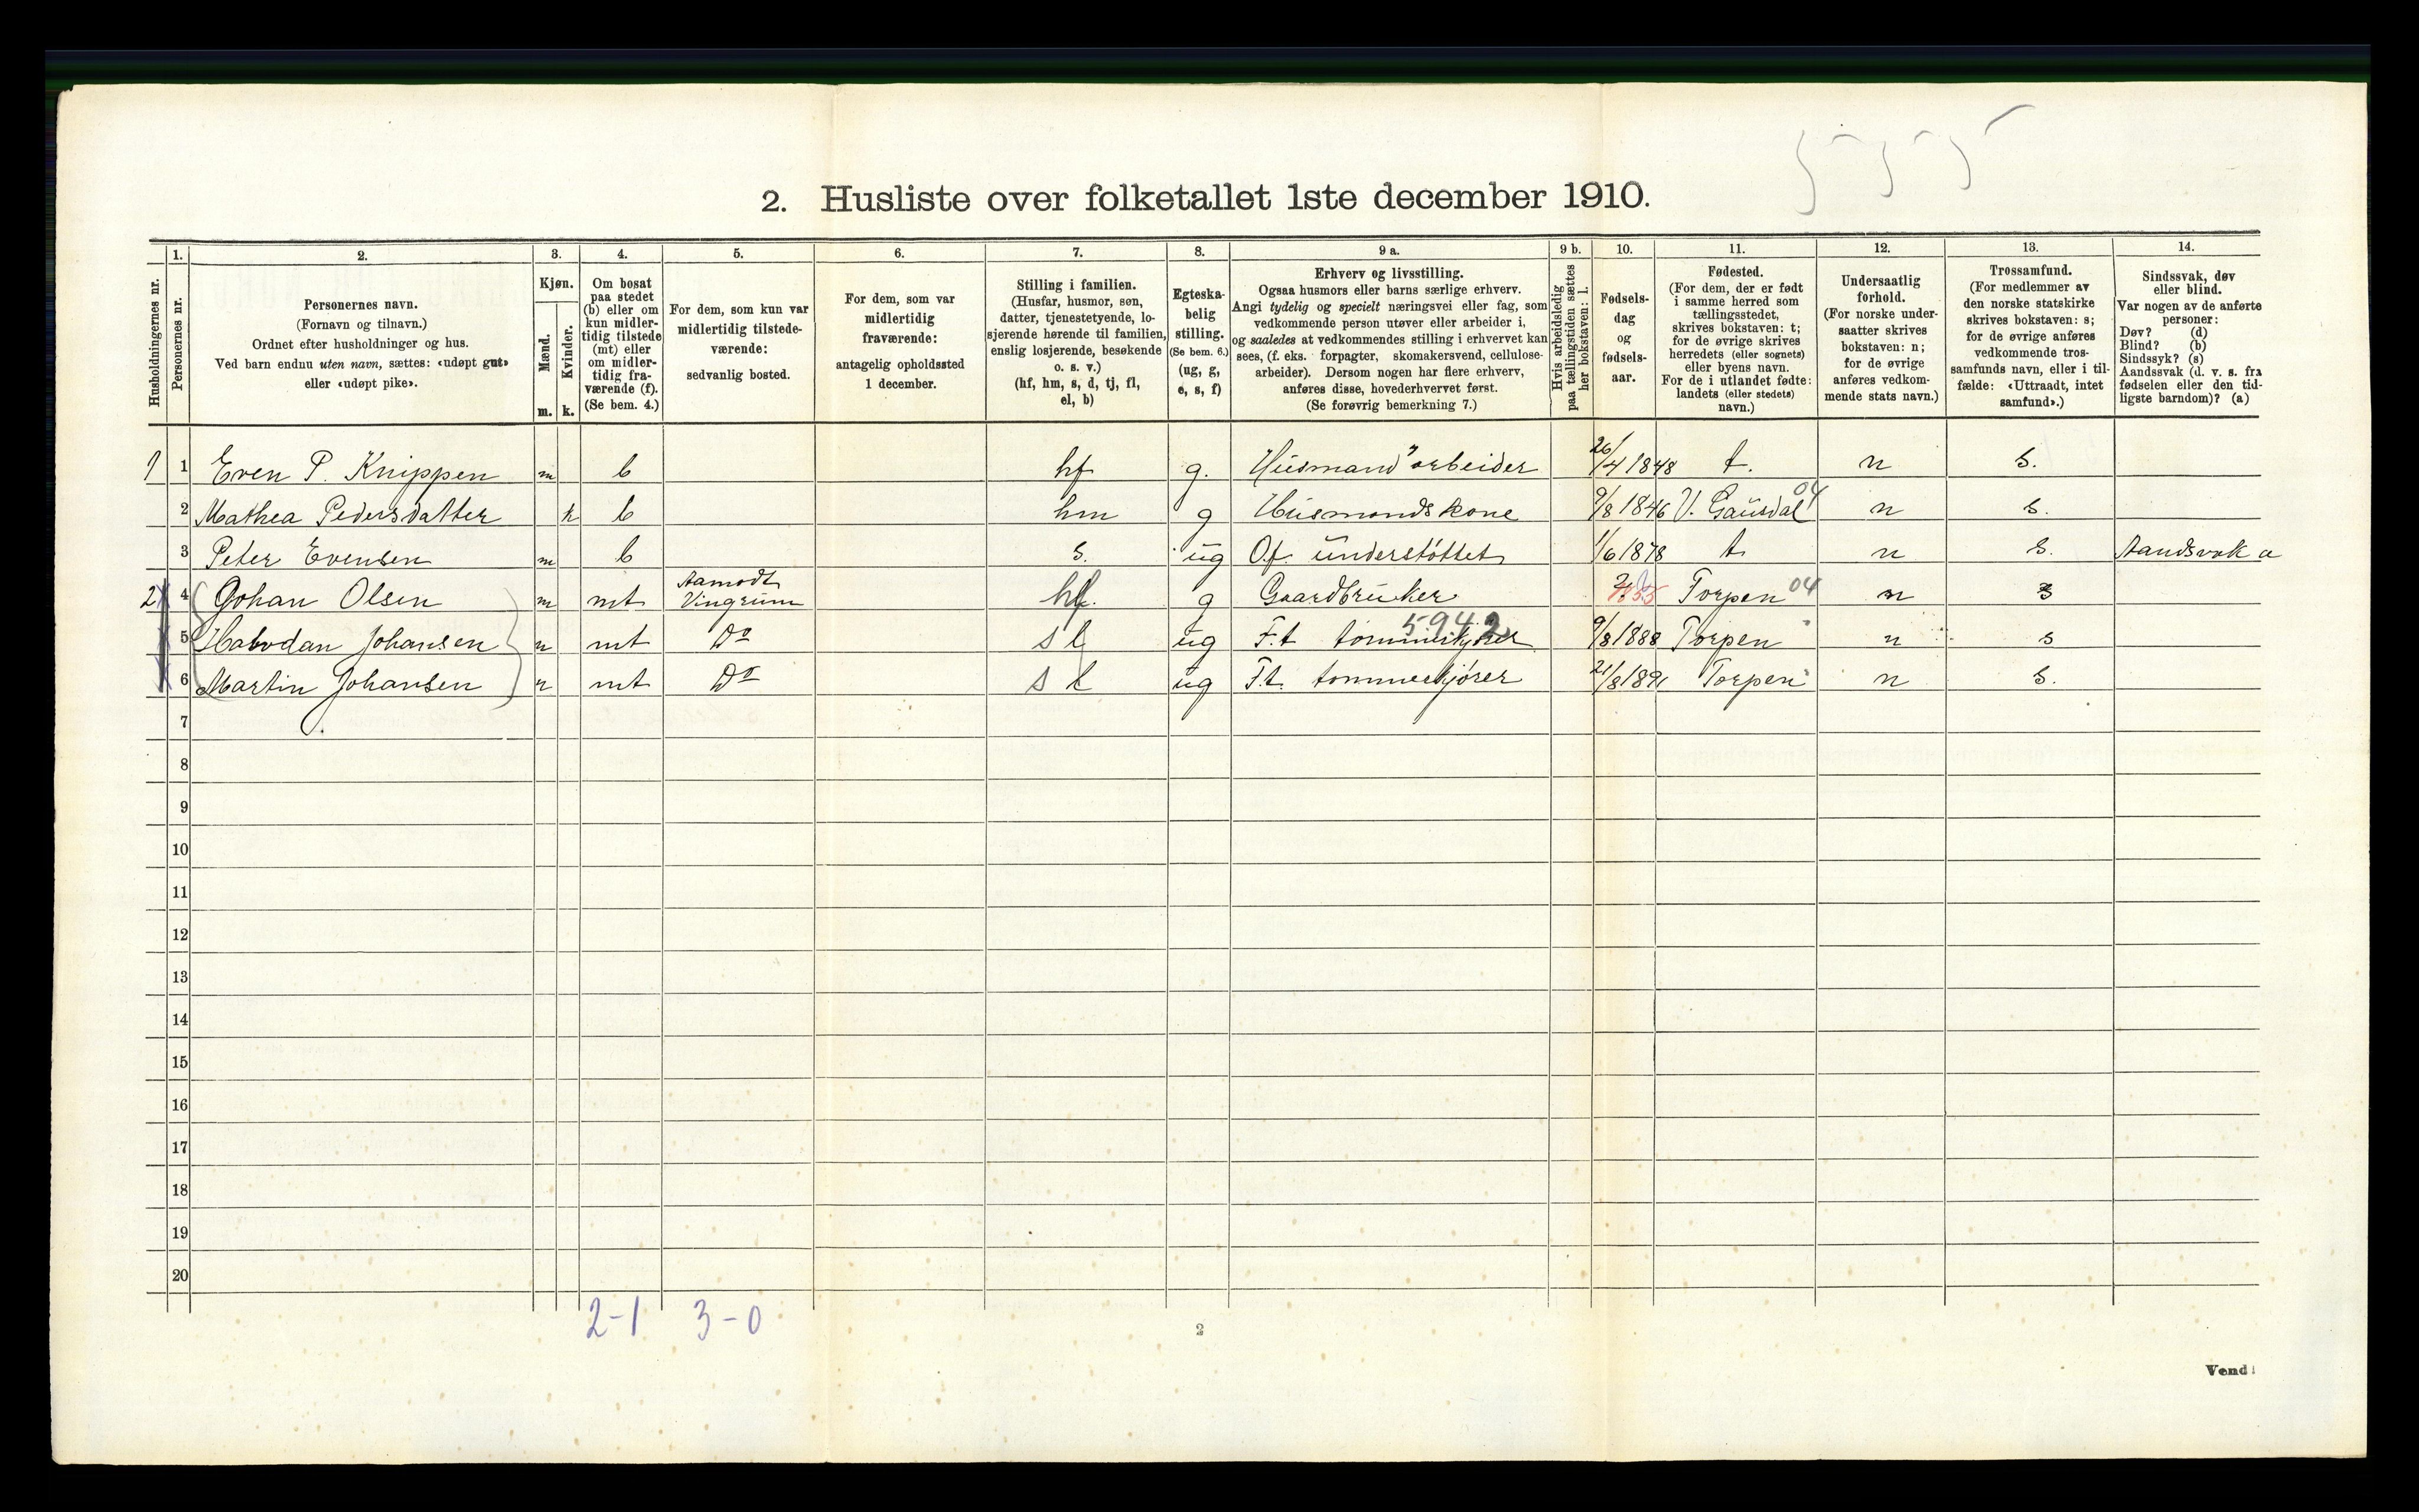 5 5 5
2. Husliste over folketallet 1ste december 1910.
Husholdningernes nr.
1. Personernes nr.
2. Personernes navn.
(Fornavn og tilnavn.)
Ordnet efter husholdninger og hus.
Ved barn endnu uten navn, sættes: «udøpt gut»
eller «udøpt pike».
3. Kjøn.
Mænd. m.
Kvinder. k.
4. Om bosat
paa stedet
(b) eller om
kun midler-
tidig tilstede
(mt) eller
om midler-
tidig fra-
værende (f).
(Se bem. 4.)
5. For dem, som kun var
midlertidig tilstede-
værende:
sedvanlig bosted.
6. For dem, som var
midlertidig
fraværende:
antagelig opholdssted
1 december.
7. Stilling i familien.
(Husfar, husmor, søn,
datter, tjenestetyende, lo-
sjerende hørende til familien,
enslig losjerende, besøkende
o. s. v.)
(hf, hm, s, d, tj, fl,
el, b)
8. Egteska-
belig
stilling.
(Se bem. 6.)
(ug, g,
e, s, f)
9 a. Erhverv og livsstilling.
Ogsaa husmors eller barns særlige erhverv.
Angi tydelig og specielt næringsvei eller fag, som
vedkommende person utøver eller arbeider i,
og saaledes at vedkommendes stilling i erhvervet kan
sees, (f. eks. forpagter, skomakersvend, cellulose-
arbeider). Dersom nogen har flere erhverv,
anføres disse, hovederhvervet først.
(Se forøvrig bemerkning 7.)
9 b. Hvis arbeidsledig
paa tællingstiden sættes
her bokstaven: l.
10. Fødsels-
dag
og
fødsels-
aar.
11. Fødested.
(For dem, der er født
i samme herred som
tællingsstedet,
skrives bokstaven: t;
for de øvrige skrives
herredets (eller sognets)
eller byens navn.
For de i utlandet fødte:
landets (eller stedets)
navn.)
12. Undersaatlig
forhold.
(For norske under-
saatter skrives
bokstaven: n;
for de øvrige
anføres vedkom-
mende stats navn.)
13. Trossamfund.
(For medlemmer av
den norske statskirke
skrives bokstaven: s;
for de øvrige anføres
vedkommende tros-
samfunds navn, eller i til-
fælde: «Uttraadt, intet
samfund».)
14. Sindssvak, døv
eller blind.
Var nogen av de anførte
personer:
Døv? (d)
Blind? (b)
Sindssyk? (s)
Aandssvak (d. v. s. fra
fødselen eller den tid-
ligste barndom)? (a)
1 1 Even P. Knippen m b hf g. Husmand arbeider 26/4 1848 t. n s.
2 Mathea Pedersdatter k b hm g Husmandskone 9/8 1846 V. Gausdal 04 n s.
3 Peter Evensen m b s. ug Of. understøttet 1/6 1878 t n s. Aandsvak a
2 4 Johan Olsen m mt Aamodt Vingrum hf. g Gaardbruker Torpen 04 n s
5 Halvdan Johansen m mt Do s l ug F.t tømmerkjører 5942 9/8 1888 Torpen n s
6 Martin Johansen m mt Do s l ug F.t. tømmerkjører 21/8 1891 Torpen n s.
7
8
9
10
11
12
13
14
15
16
17
18
19
20
2-1 3-0
2
Vend!